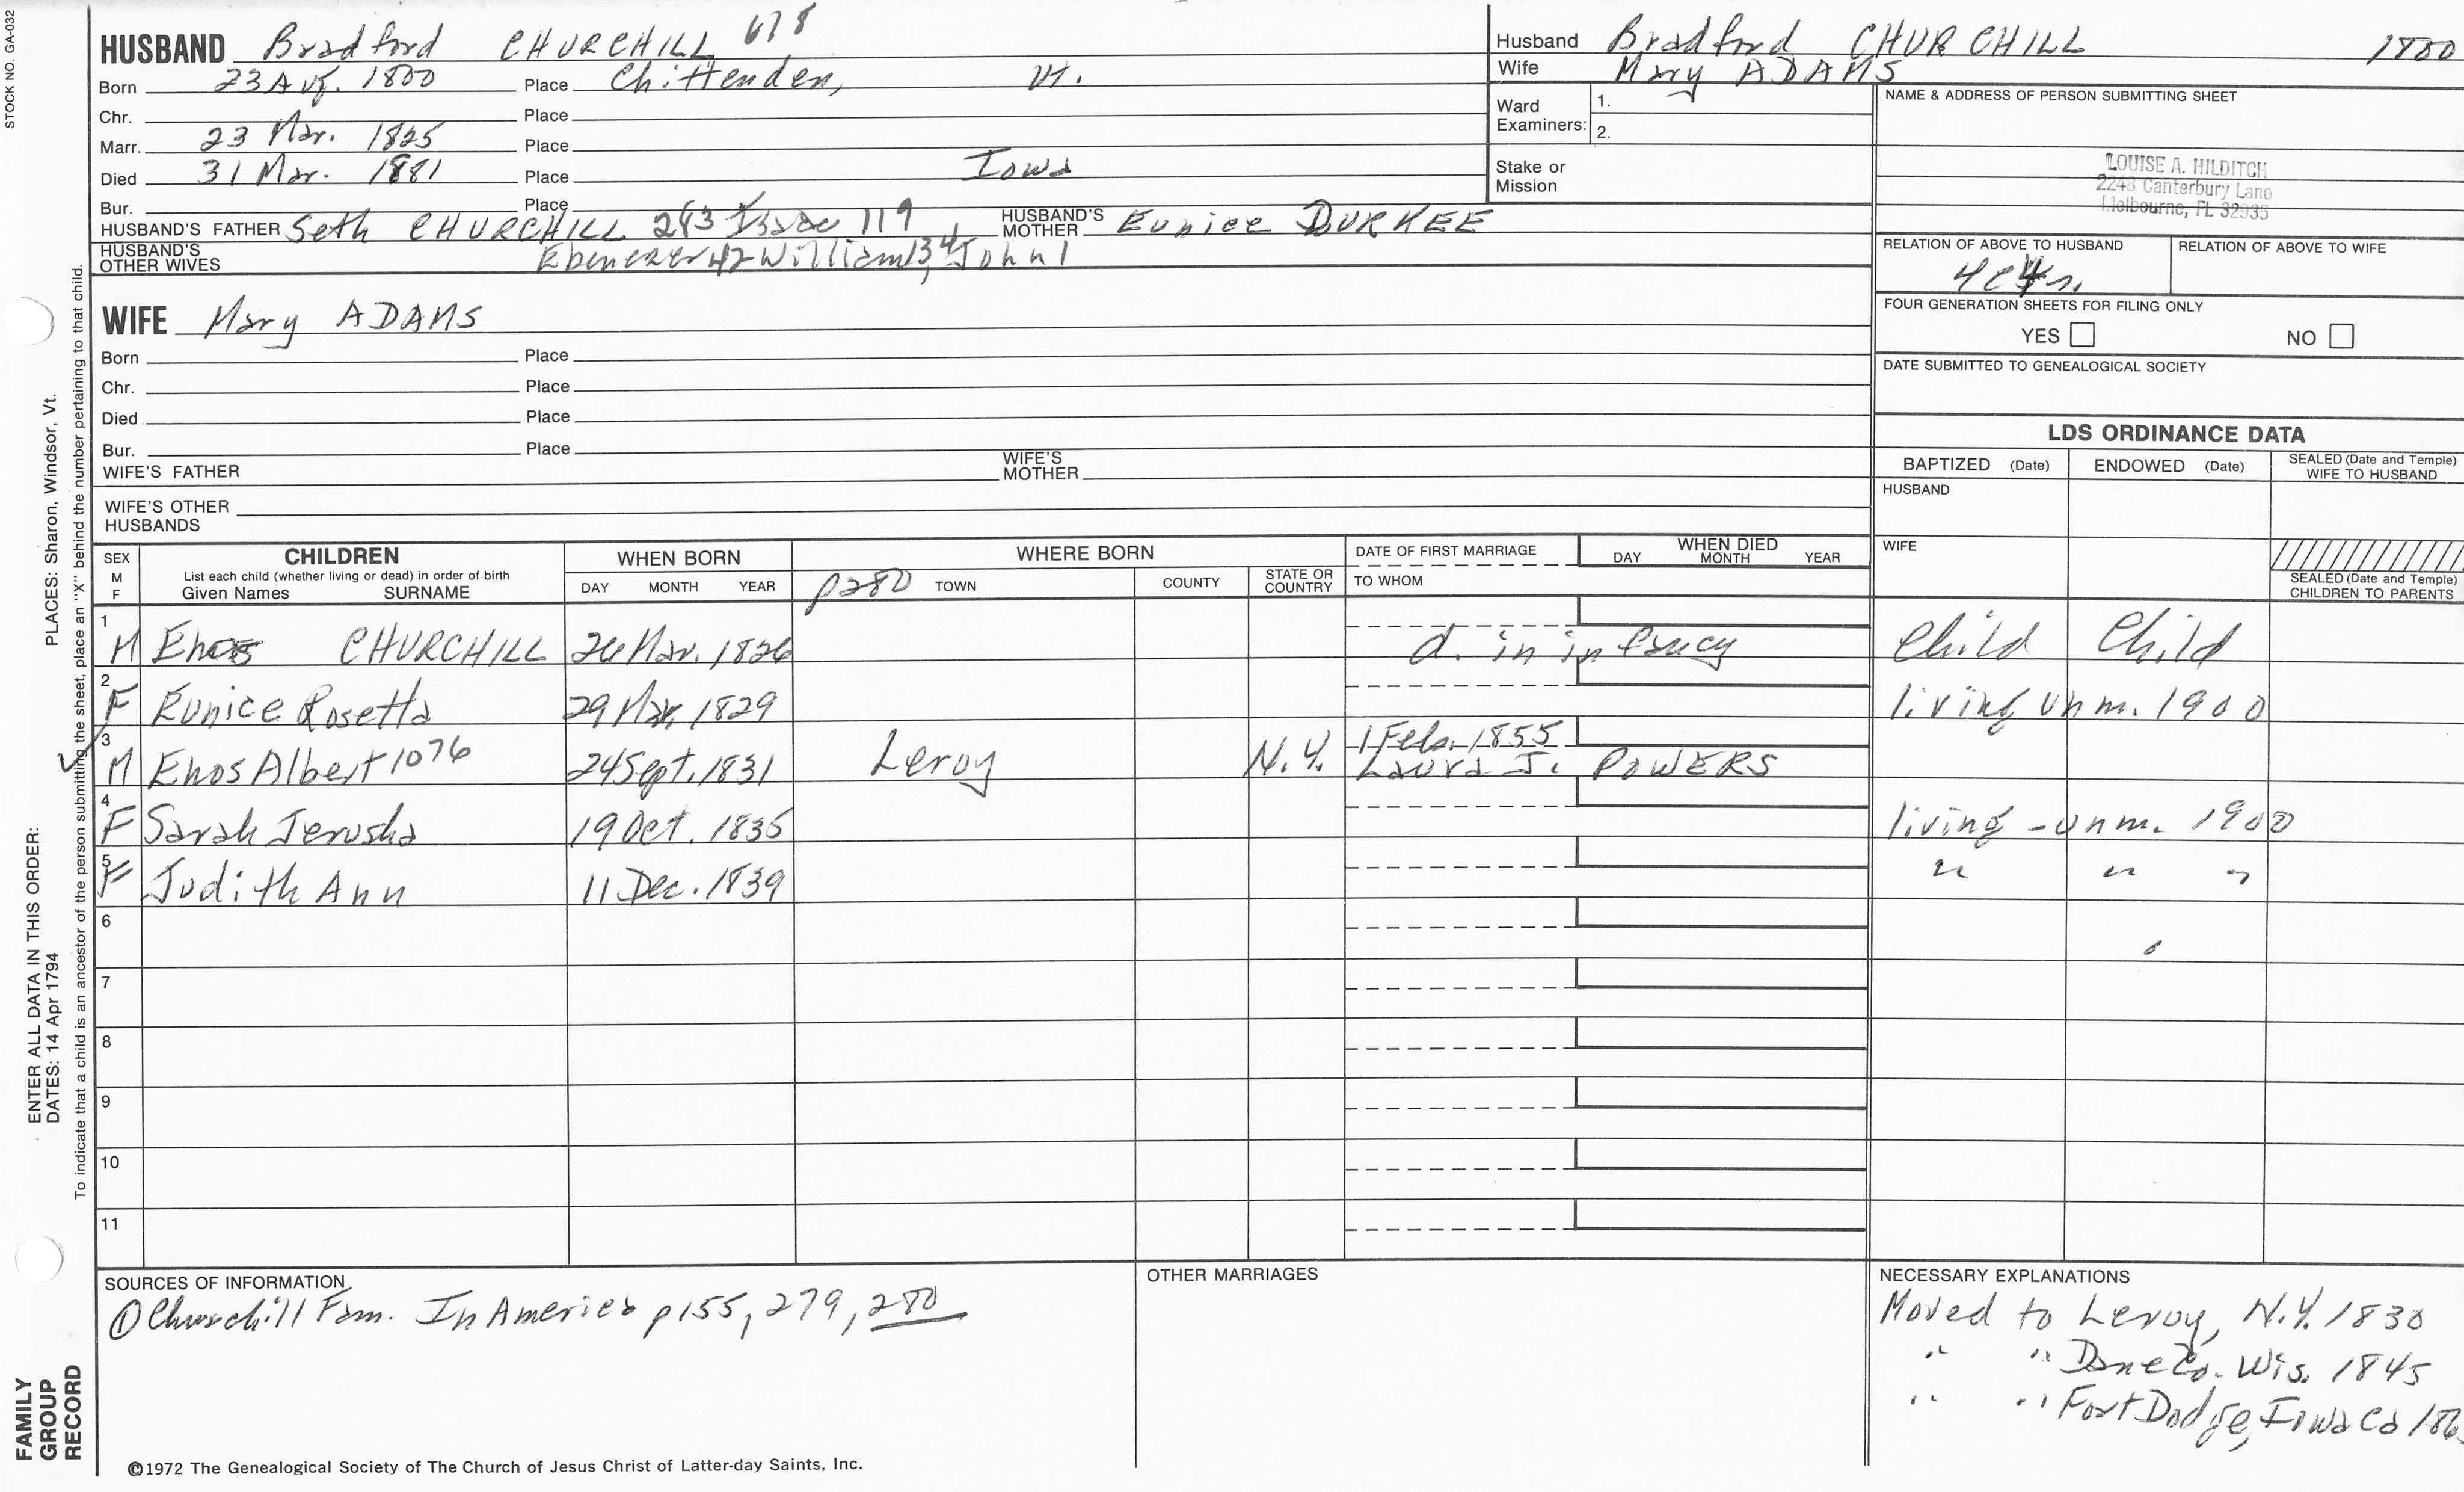 STOCK NO. GA-032
HUSBAND Bradford CHURCHILL 678
Born 23 Aug. 1800 Place Chittenden, Vt.
Chr. Place
Marr. 23 Mar. 1825 Place
Died 31 Mar. 1881 Place Iowa
Bur. Place
HUSBAND'S FATHER Seth CHURCHILL 283 Isaac 119 HUSBAND'S MOTHER Eunice DURKEE
HUSBAND'S OTHER WIVES Ebenezer 42 William 13, 4 John 1
WIFE Mary ADAMS
Born Place
Chr. Place
Died Place
Bur. Place
WIFE'S FATHER WIFE'S MOTHER
WIFE'S OTHER HUSBANDS
Husband Bradford CHURCHILL 1800
Wife Mary ADAMS
Ward Examiners: 1.
2.
Stake or Mission
NAME & ADDRESS OF PERSON SUBMITTING SHEET
LOUISE A. HILDITCH
2248 Canterbury Lane
Melbourne, FL 32935
RELATION OF ABOVE TO HUSBAND RELATION OF ABOVE TO WIFE
4c4r.
FOUR GENERATION SHEETS FOR FILING ONLY
YES NO
DATE SUBMITTED TO GENEALOGICAL SOCIETY
LDS ORDINANCE DATA
BAPTIZED (Date) ENDOWED (Date) SEALED (Date and Temple) WIFE TO HUSBAND
HUSBAND
WIFE
SEALED (Date and Temple) CHILDREN TO PARENTS
SEX M F
CHILDREN
List each child (whether living or dead) in order of birth
Given Names SURNAME
WHEN BORN
DAY MONTH YEAR
WHERE BORN
p280 TOWN COUNTY STATE OR COUNTRY
DATE OF FIRST MARRIAGE
TO WHOM
WHEN DIED
DAY MONTH YEAR
1 M Enos CHURCHILL 26 Mar. 1826 d. in infancy Child Child
2 F Eunice Rosetta 29 Mar. 1829 living unm. 1900
3 M Enos Albert 1076 24 Sept. 1831 Leroy N.Y. 1 Feb. 1855
Laura J. POWERS
4 F Sarah Jerusha 19 Oct. 1835 living - unm. 1900
5 F Judith Ann 11 Dec. 1839 " " "
6
7
8
9
10
11
SOURCES OF INFORMATION
① Churchill Fam. In America p155, 279, 280
OTHER MARRIAGES
NECESSARY EXPLANATIONS
Moved to Leroy, N.Y. 1830
" " Dane Co. Wis. 1845
" " Fort Dodge, Iowa Co 186
©1972 The Genealogical Society of The Church of Jesus Christ of Latter-day Saints, Inc.
FAMILY GROUP RECORD
ENTER ALL DATA IN THIS ORDER:
DATES: 14 Apr 1794
PLACES: Sharon, Windsor, Vt.
To indicate that a child is an ancestor of the person submitting the sheet, place an "X" behind the number pertaining to that child.